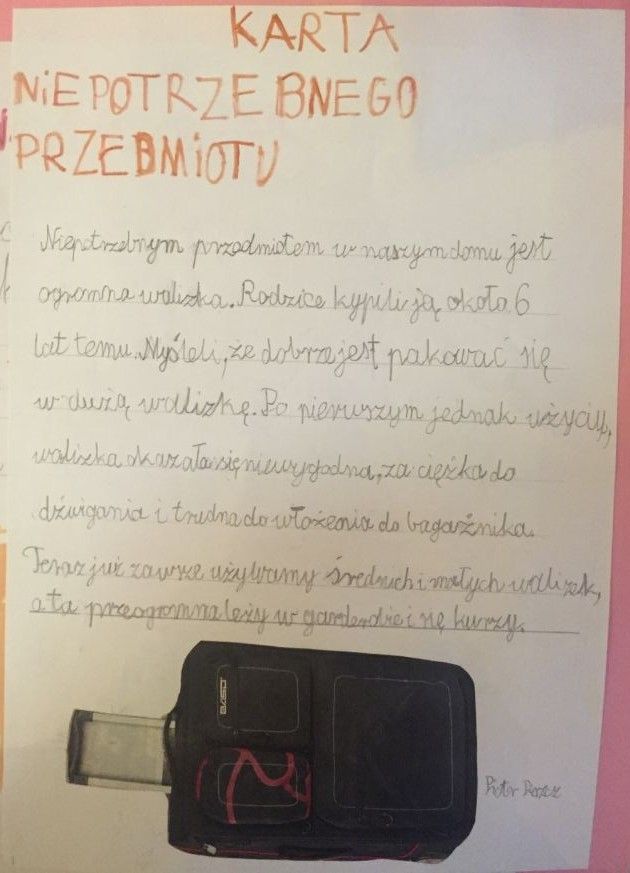 KARTA
NiEPOTRZEBNEGO
PRZEBMiOTU
Niepotrzebnym przedmiotem w naszym domu jest
ogromna walizka. Rodzice kypili ją około 6
lat temu. Myśleli, że dobrze jest pakować się
w dużą walizkę. Po pierwszym jednak użyciu,
walizka okazała się niewygodna, za ciężka do
dźwigania i trudna do włożenia do bagażnika.
Teraz już zawsze używamy średnich i małych walizek,
a ta przeogromna leży w garderobie i się kurzy.
Piotr